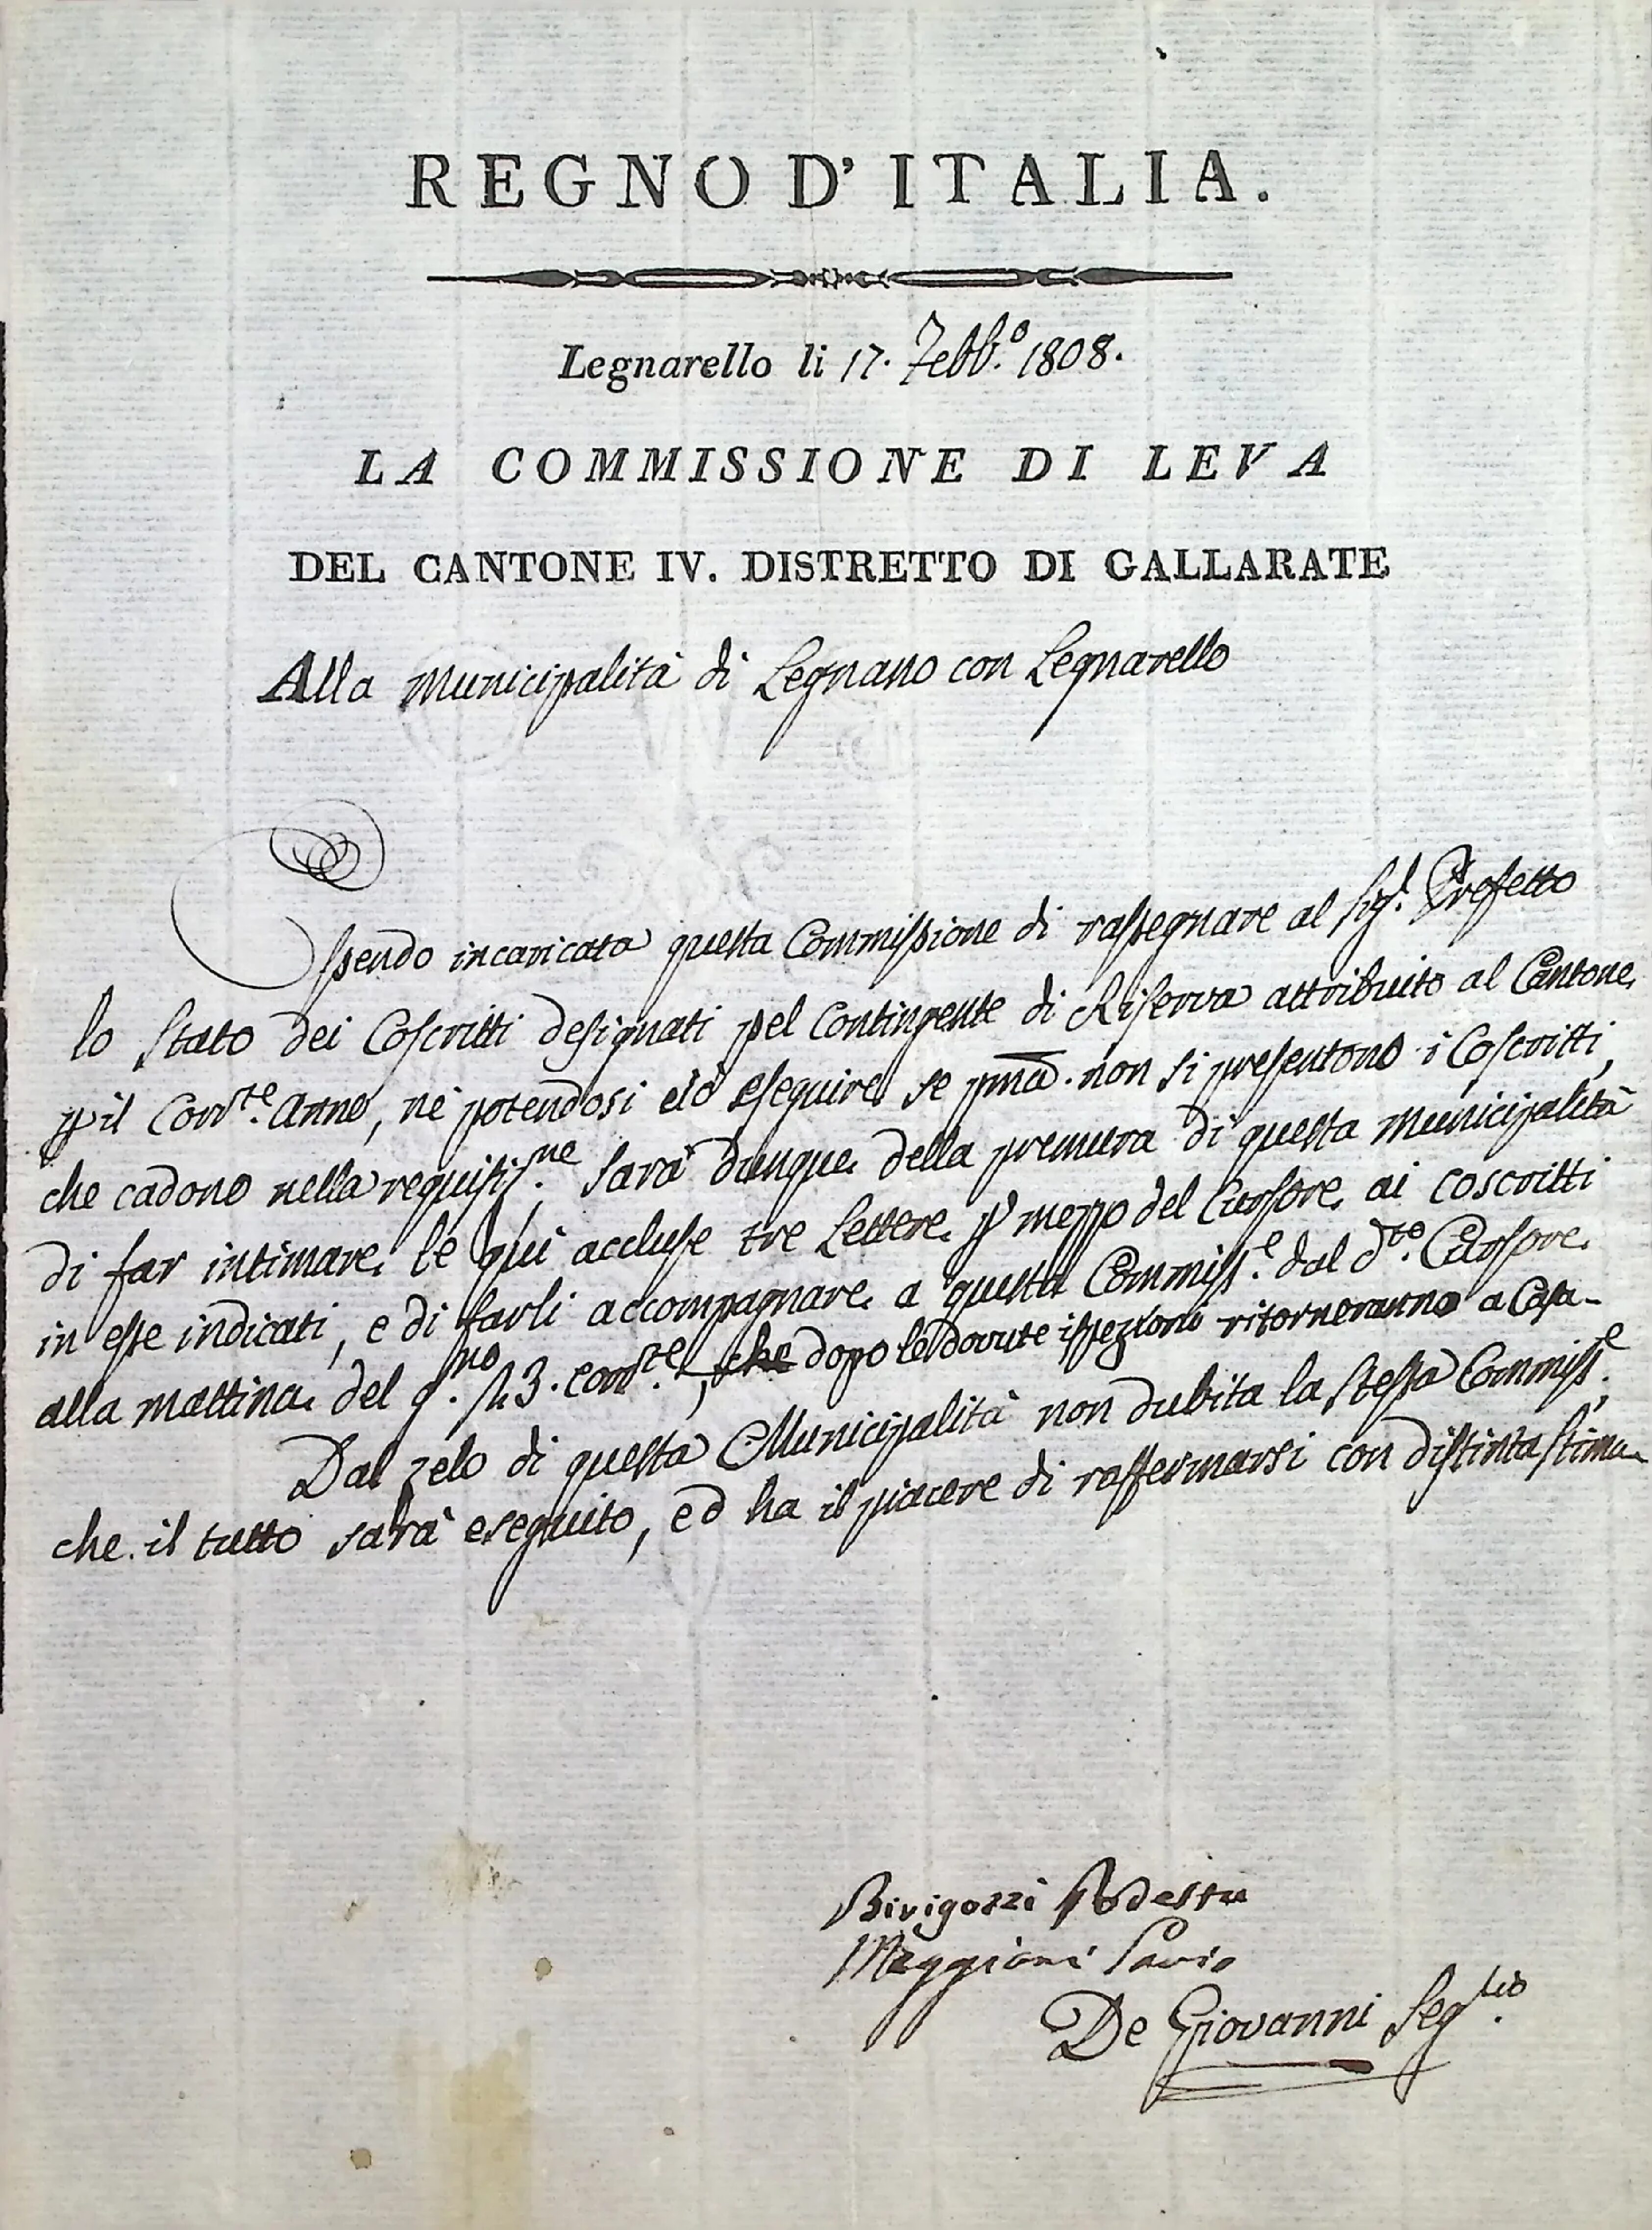 REGNO D'ITALIA.
Legnarello li 17. Febb.o 1808.
LA COMMISSIONE DI LEVA
DEL CANTONE IV. DISTRETTO DI GALLARATE
Alla Municipalità di Legnano con Legnarello
Essendo incaricata questa Commissione di rassegnare al Sig.r Prefetto
lo Stato dei Coscritti designati pel Contingente di Riserva attribuito al Cantone
p il Corr.te Anno, nè potendosi ciò eseguire se pma. non si presentono i Coscritti,
che cadono nella requisiz.ne sarà dunque della premura di questa Municipalità
di far intimare le qui accluse tre Lettere p mezzo del Cursore ai coscritti
in esse indicati, e di farli accompagnare a questa Commiss.e dal d.to Cursore
alla mattina del g.no 23. corr.te, che dopo le dovute ispezioni ritorneranno a Casa-
Dal zelo di questa Municipalità non dubita la stessa Commiss.e,
che il tutto sarà eseguito, ed ha il piacere di raffermarsi con distinta stima
Birigozzi Podestà
Maggioni Savio
De Giovanni Seg.rio